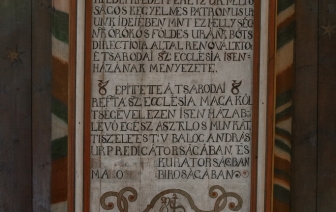 SÁGOS KEGYELMES PATRONUSUN
UNK IDEJÉBEN MINT EZ HELLYSÉG
NEK ÖRÖKÖS FÖLDES URÁNK BÖTS
DIRECTIOJA ÁLTAL RENOVALKTO
E TSARODAI SZ ECCLESIA ISEN
HÁZÁNAK MENYEZETE.
ÉPITETTE A TSARODAI
REFTA SZ ECCLESIA MAGA KÖL
TSÉGÉVEL EZEN ISEN HÁZÁB
LEVŐ EGÉSZ ASZTALOS MUNKÁT
TISZELETEST: V BALOG ANDRÁS
UR PREDICATORSÁGÁBAN ÉS
KURATORSÁGBAN
BIROSÁGÁBAN